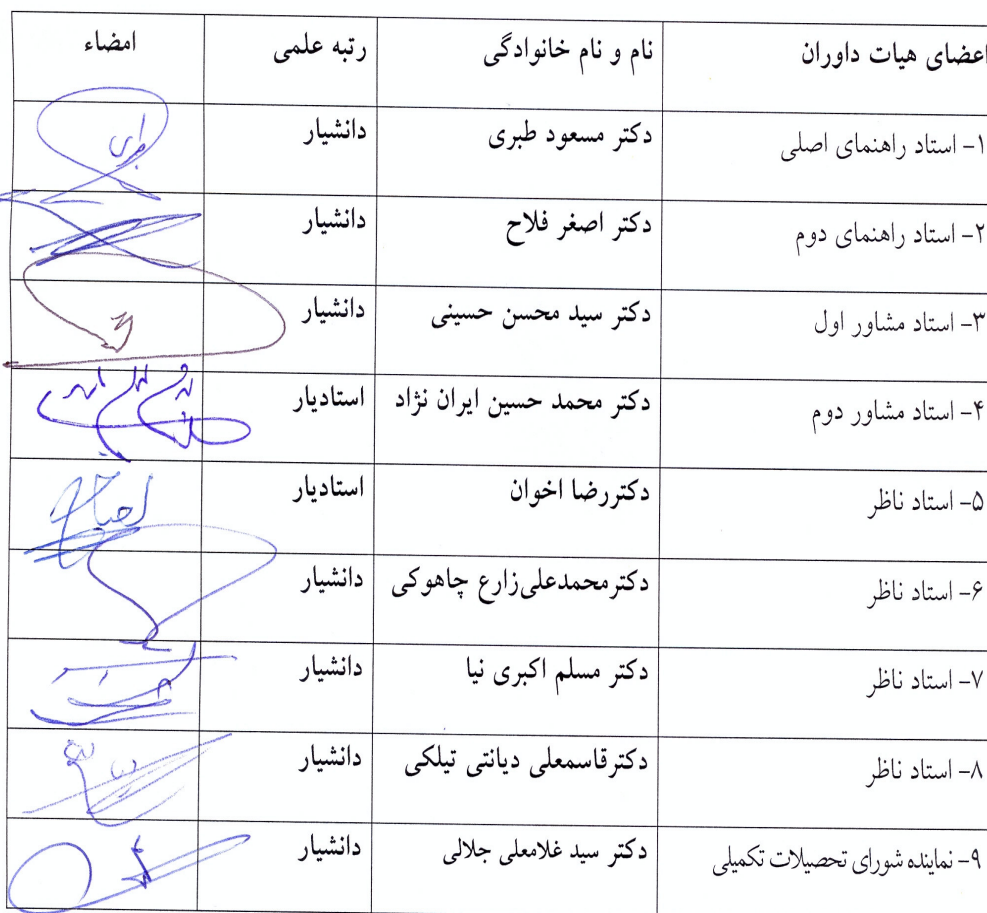 اعضای هیات داوران نام و نام خانوادگی رتبه علمی امضاء
۱- استاد راهنمای اصلی دکتر مسعود طبری دانشیار
۲- استاد راهنمای دوم دکتر اصغر فلاح دانشیار
۳- استاد مشاور اول دکتر سید محسن حسینی دانشیار
۴- استاد مشاور دوم دکتر محمد حسین ایران نژاد استادیار
۵- استاد ناظر دکتررضا اخوان استادیار
۶- استاد ناظر دکترمحمدعلی‌زارع چاهوکی دانشیار
۷- استاد ناظر دکتر مسلم اکبری نیا دانشیار
۸- استاد ناظر دکترقاسمعلی دیانتی تیلکی دانشیار
۹- نماینده شورای تحصیلات تکمیلی دکتر سید غلامعلی جلالی دانشیار